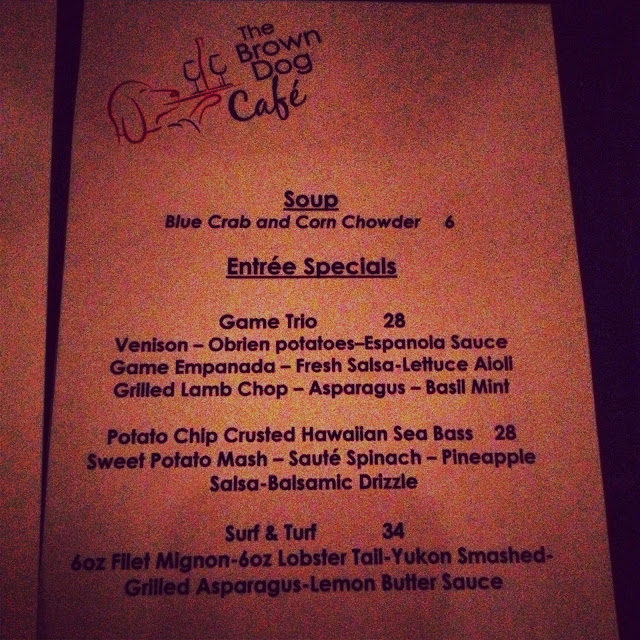 The
Brown
Dog
Café
Soup
Blue Crab and Corn Chowder 6
Entrée Specials
Game Trio 28
Venison – Obrien potatoes–Espanola Sauce
Game Empanada – Fresh Salsa-Lettuce Aioli
Grilled Lamb Chop – Asparagus – Basil Mint
Potato Chip Crusted Hawaiian Sea Bass 28
Sweet Potato Mash – Sauté Spinach – Pineapple
Salsa-Balsamic Drizzle
Surf & Turf 34
6oz Filet Mignon-6oz Lobster Tail-Yukon Smashed-
Grilled Asparagus-Lemon Butter Sauce